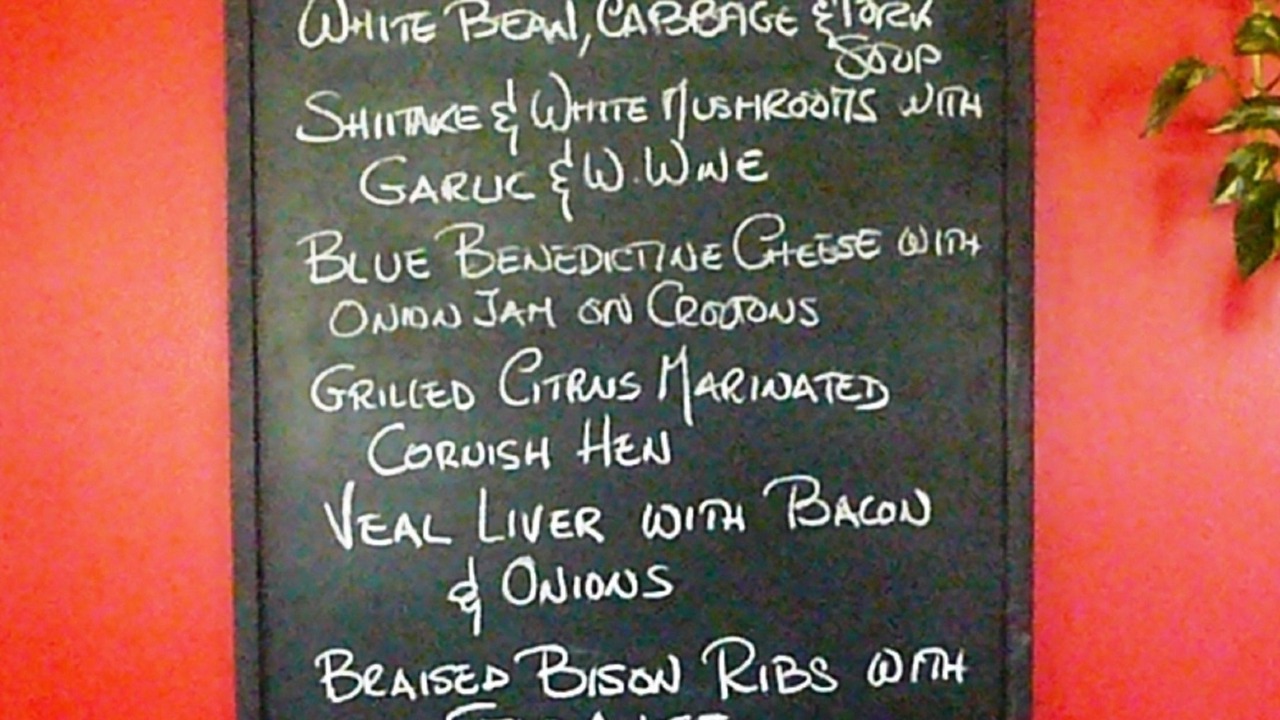 WHITE BEAN, CABBAGE & PORK
SOUP
SHIITAKE & WHITE MUSHROOMS WITH
GARLIC & W. WINE
BLUE BENEDICTINE CHEESE WITH
ONION JAM ON CROUTONS
GRILLED CITRUS MARINATED
CORNISH HEN
VEAL LIVER WITH BACON
& ONIONS
BRAISED BISON RIBS WITH